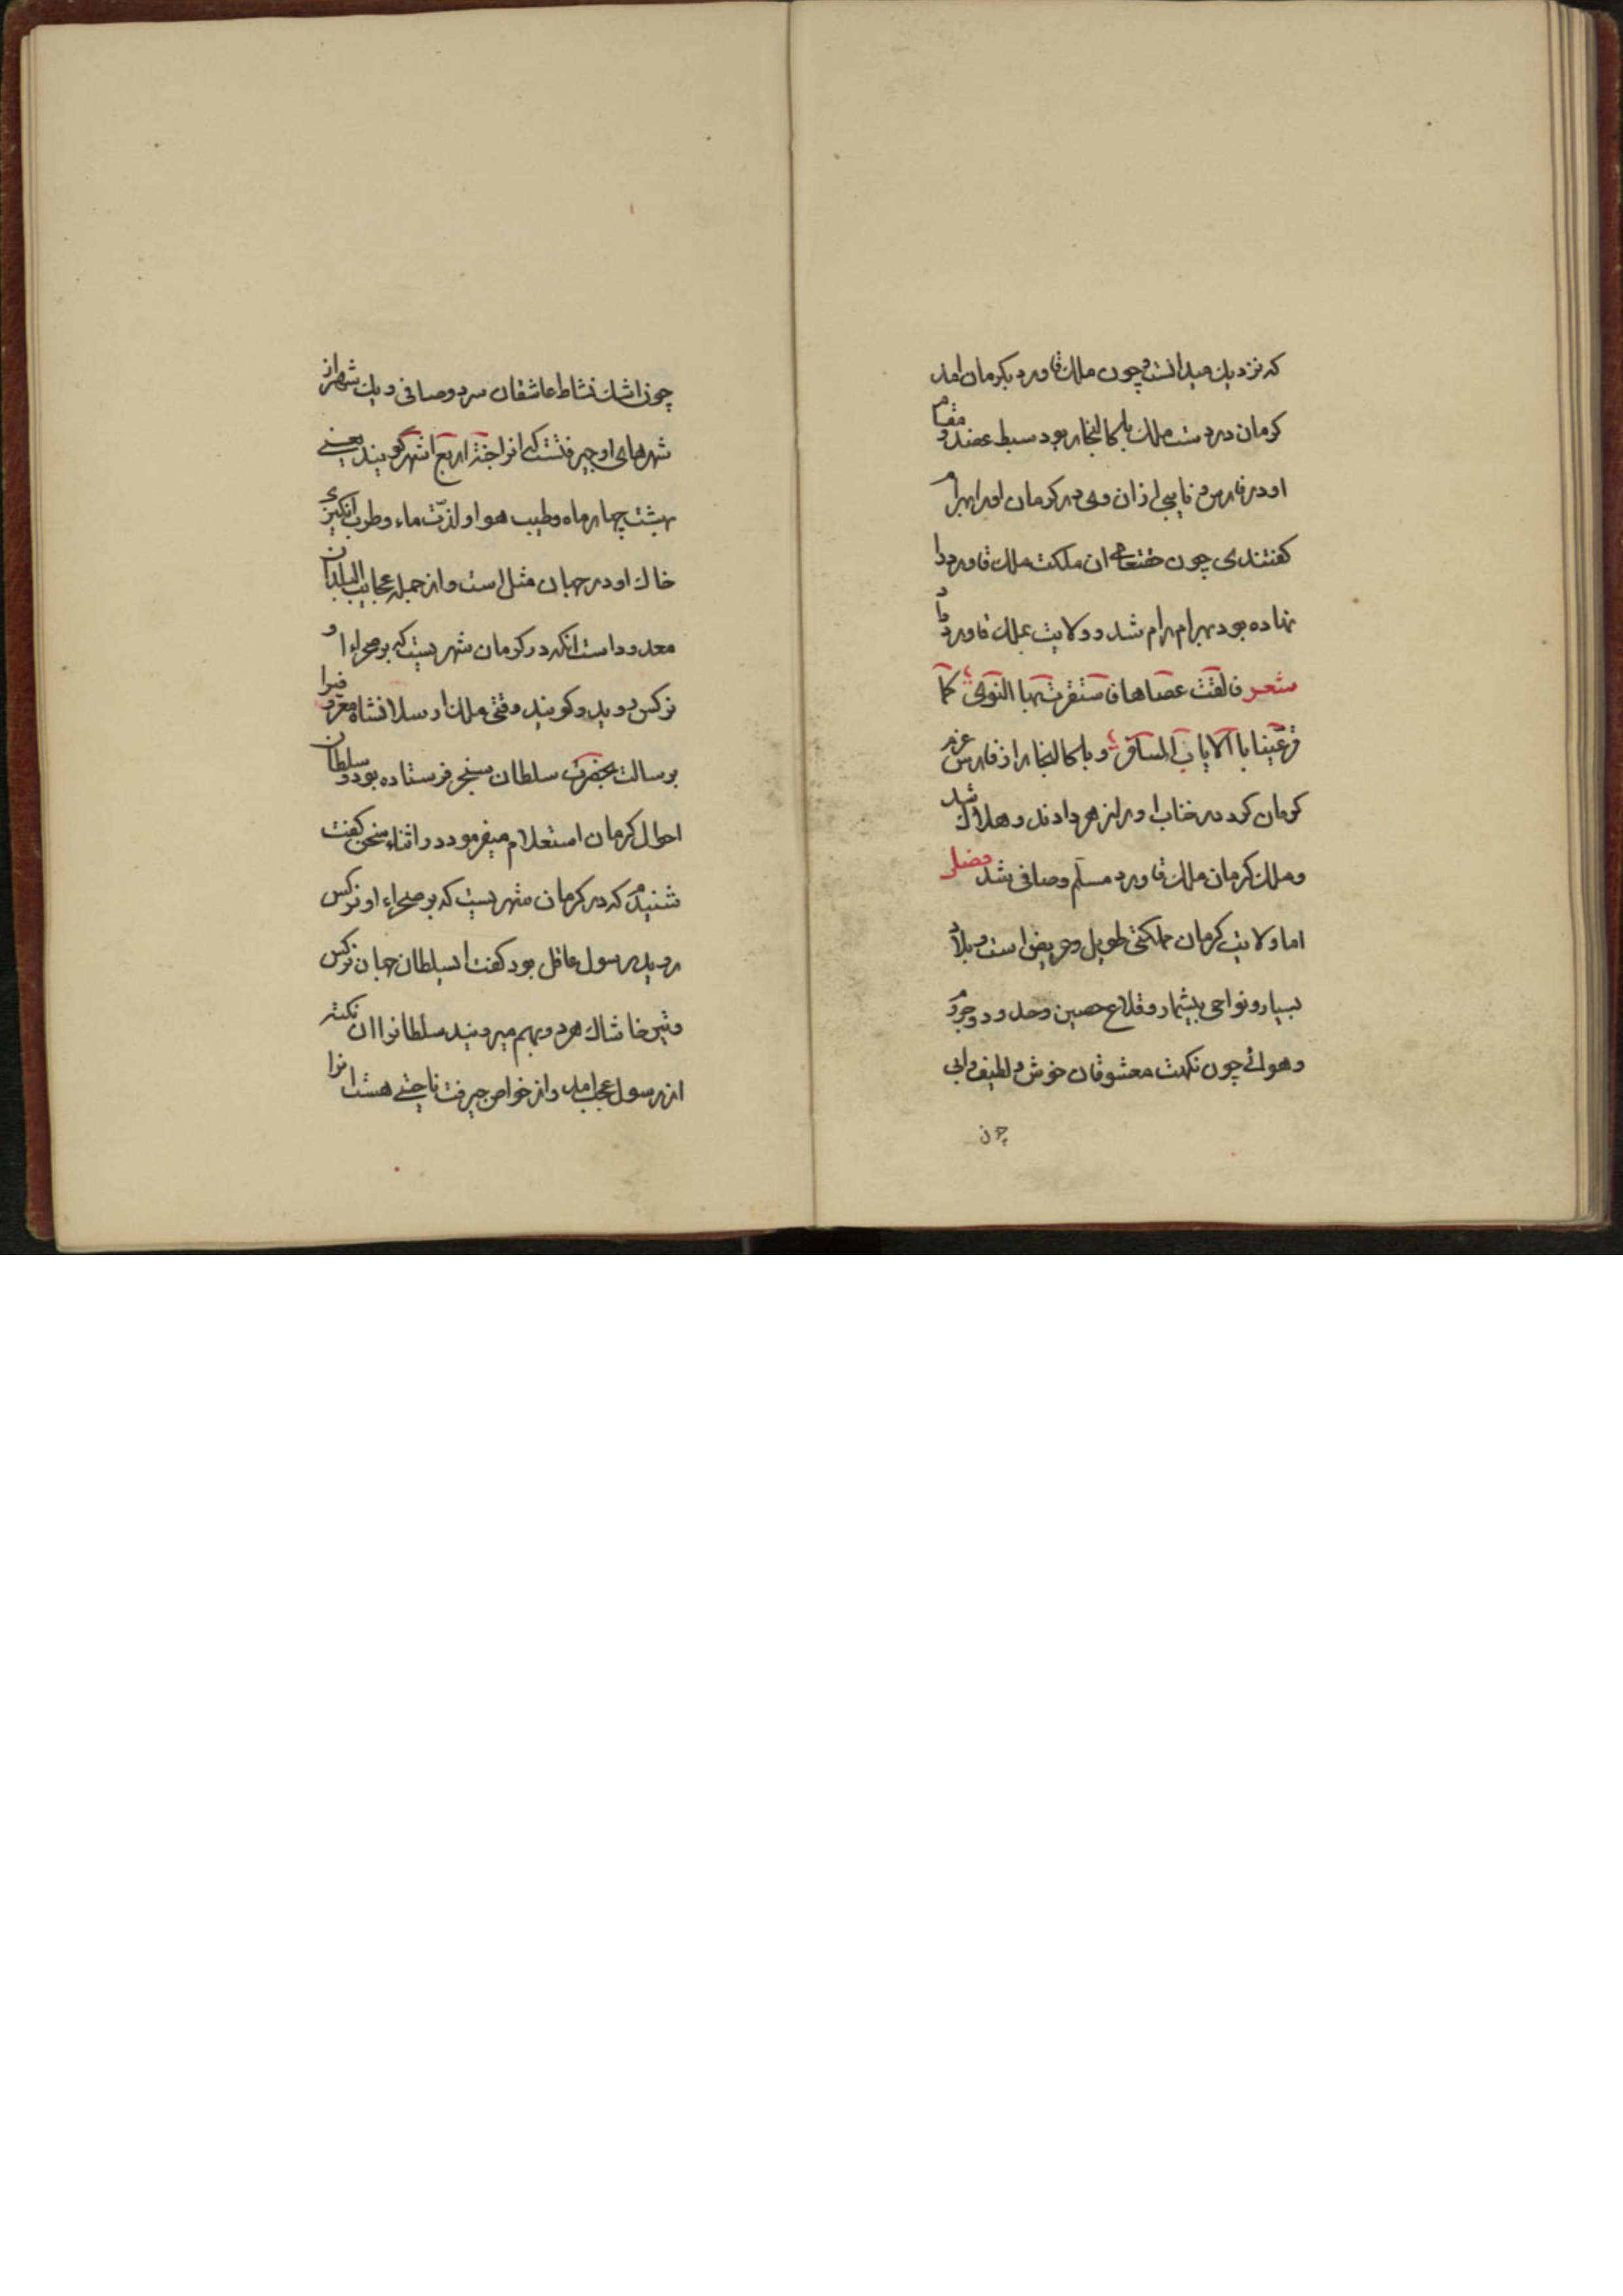 که نزدیک میدانست و چون ملک قاورد بکرمان امد
کرمان در دست ملک باکالنجار بود سبط عضد و مقام
او در فارس و نایبی از ان وی در کرمان او را بهرام
کفتندی چون ختعام ان ملکت ملک قاورد را
نهاده بود بهرام رام شد و ولایت بملک قاورد داد
شعر فالقت عصاها فاستقرت بها النوی کما
قر عینا بالایاب المسافر و باکالنجار از فارس عزم
کرمان کرد در خناب او را زهر دادند و هلاک شد
و ملک کرمان ملک قاورد مسلم و صافی شد فصل
اما ولایت کرمان مملکتی طویل و عریض است و بلاد
بسیار و نواحی بیشمار و قلاع حصین وحدود و جروم
و هوائے چون نکهت معشوقان خوش و لطیف وابی
چون
چون اشک نشاط عاشقان سرد و صافی و یک شهر از
شهرهای او جیرفتست که انرا جنة اربع اشهر گویند یعنے
بهشت چهار ماه و طیب هوا و لذت ماء و طرب انکیزئ
خاک او در جهان مثل است و از جمله عجایب البلدان
معدود است انکه در کرمان شهریست که بر صحراء او
نرکس روید و کویند وقتی ملک ارسلانشاه معزی فیرا
برسالت بحضرت سلطان سنجر فرستاده بود و سلطان
احوال کرمان استعلام میفرمود در اثناء سخن کفت
شنیدم که در کرمان شهریست که بر صحراء او نرکس
روید رسول عاقل بود کفت ای سلطان جهان نرکس
و تین خاشاک هر دو بهم میروید سلطانرا ان نکته
از رسول عجب امد و از خواص جیرفت ناحیتے هست انرا